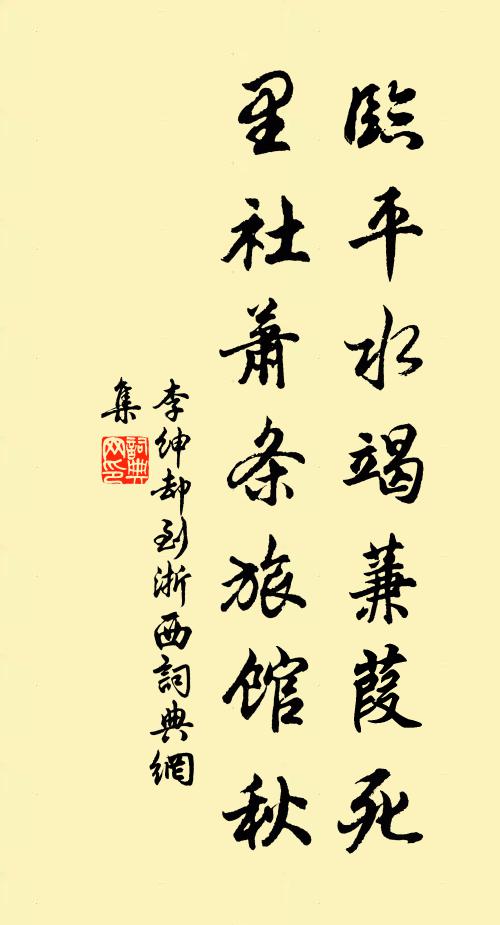 臨平水竭蒹葭死
里社蕭条旅馆秋
李紳却到浙西詞典網
集
詞典网印